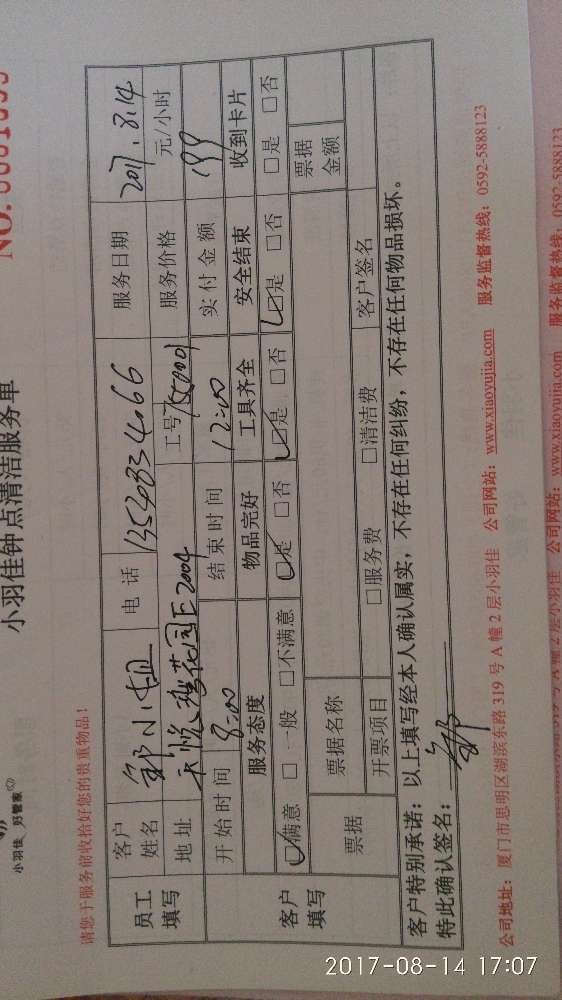 小羽佳 好管家
小羽佳钟点清洁服务单
NO.
请您于服务前收拾好您的贵重物品!
员工填写 客户姓名 邹小姐 电话 服务日期 2017.8.14
地址 天悦湾花园E2004 工号 服务价格 元/小时
开始时间 8:00 结束时间 12:00 实付金额 199
客户填写 服务态度 物品完好 工具齐全 安全结束 收到卡片
☑满意 □一般 □不满意 ☑是 □否 ☑是 □否 ☑是 □否 □是 □否
票据 票据名称 票据金额
开票项目 □服务费 □清洁费 客户签名
客户特别承诺:以上填写经本人确认属实,不存在任何纠纷,不存在任何物品损坏。
特此确认签名: 邹
公司地址:厦门市思明区湖滨东路319号A幢2层小羽佳 公司网站:www.xiaoyujia.com 服务监督热线:0592-5888123
2层小羽佳 公司网站:www.xiaoyujia.com 服务监督热线:0592-5888123
2017-08-14 17:07